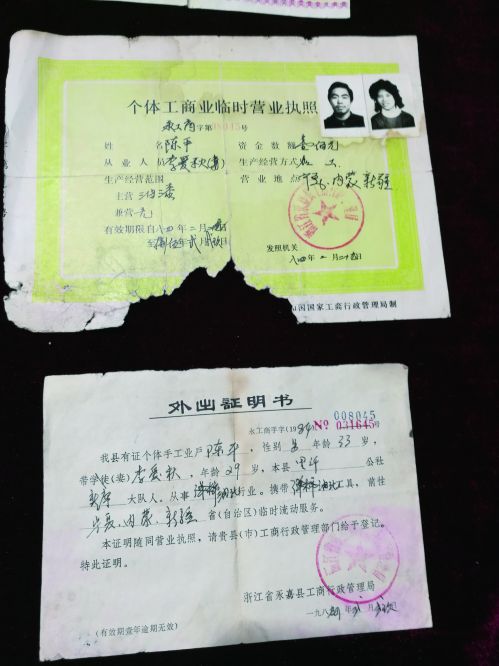 个体工商业临时营业执照
永工商字第08045号
姓名 陈平 资金数额 壹佰元
从业人员 李爱秋(妻) 生产经营方式 加工
生产经营范围 营业地点 宁夏、内蒙、新疆
主营 油漆
兼营
有效期限自八四年二月
至 年 月
发照机关
八四年二月二十 日
国家工商行政管理局制
外出証明书
008045
永工商手字(1984)No 031645号
我县有证个体手工业户陈平,性别男年龄33岁,
带学徒(妻)李爱秋,年龄29岁,本县 公社
大队人,从事 油漆行业。携带 油漆工具,前往
宁夏、内蒙、新疆省(自治区)临时流动服务。
本证明随同营业执照,请贵县(市)工商行政管理部门给予登记。
特此证明。
浙江省永嘉县工商行政管理局
一九八四年 月 日
(有效期壹年逾期无效)